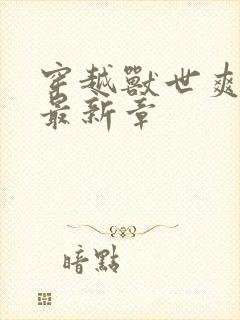 穿越獸世爽
最新章
暗點